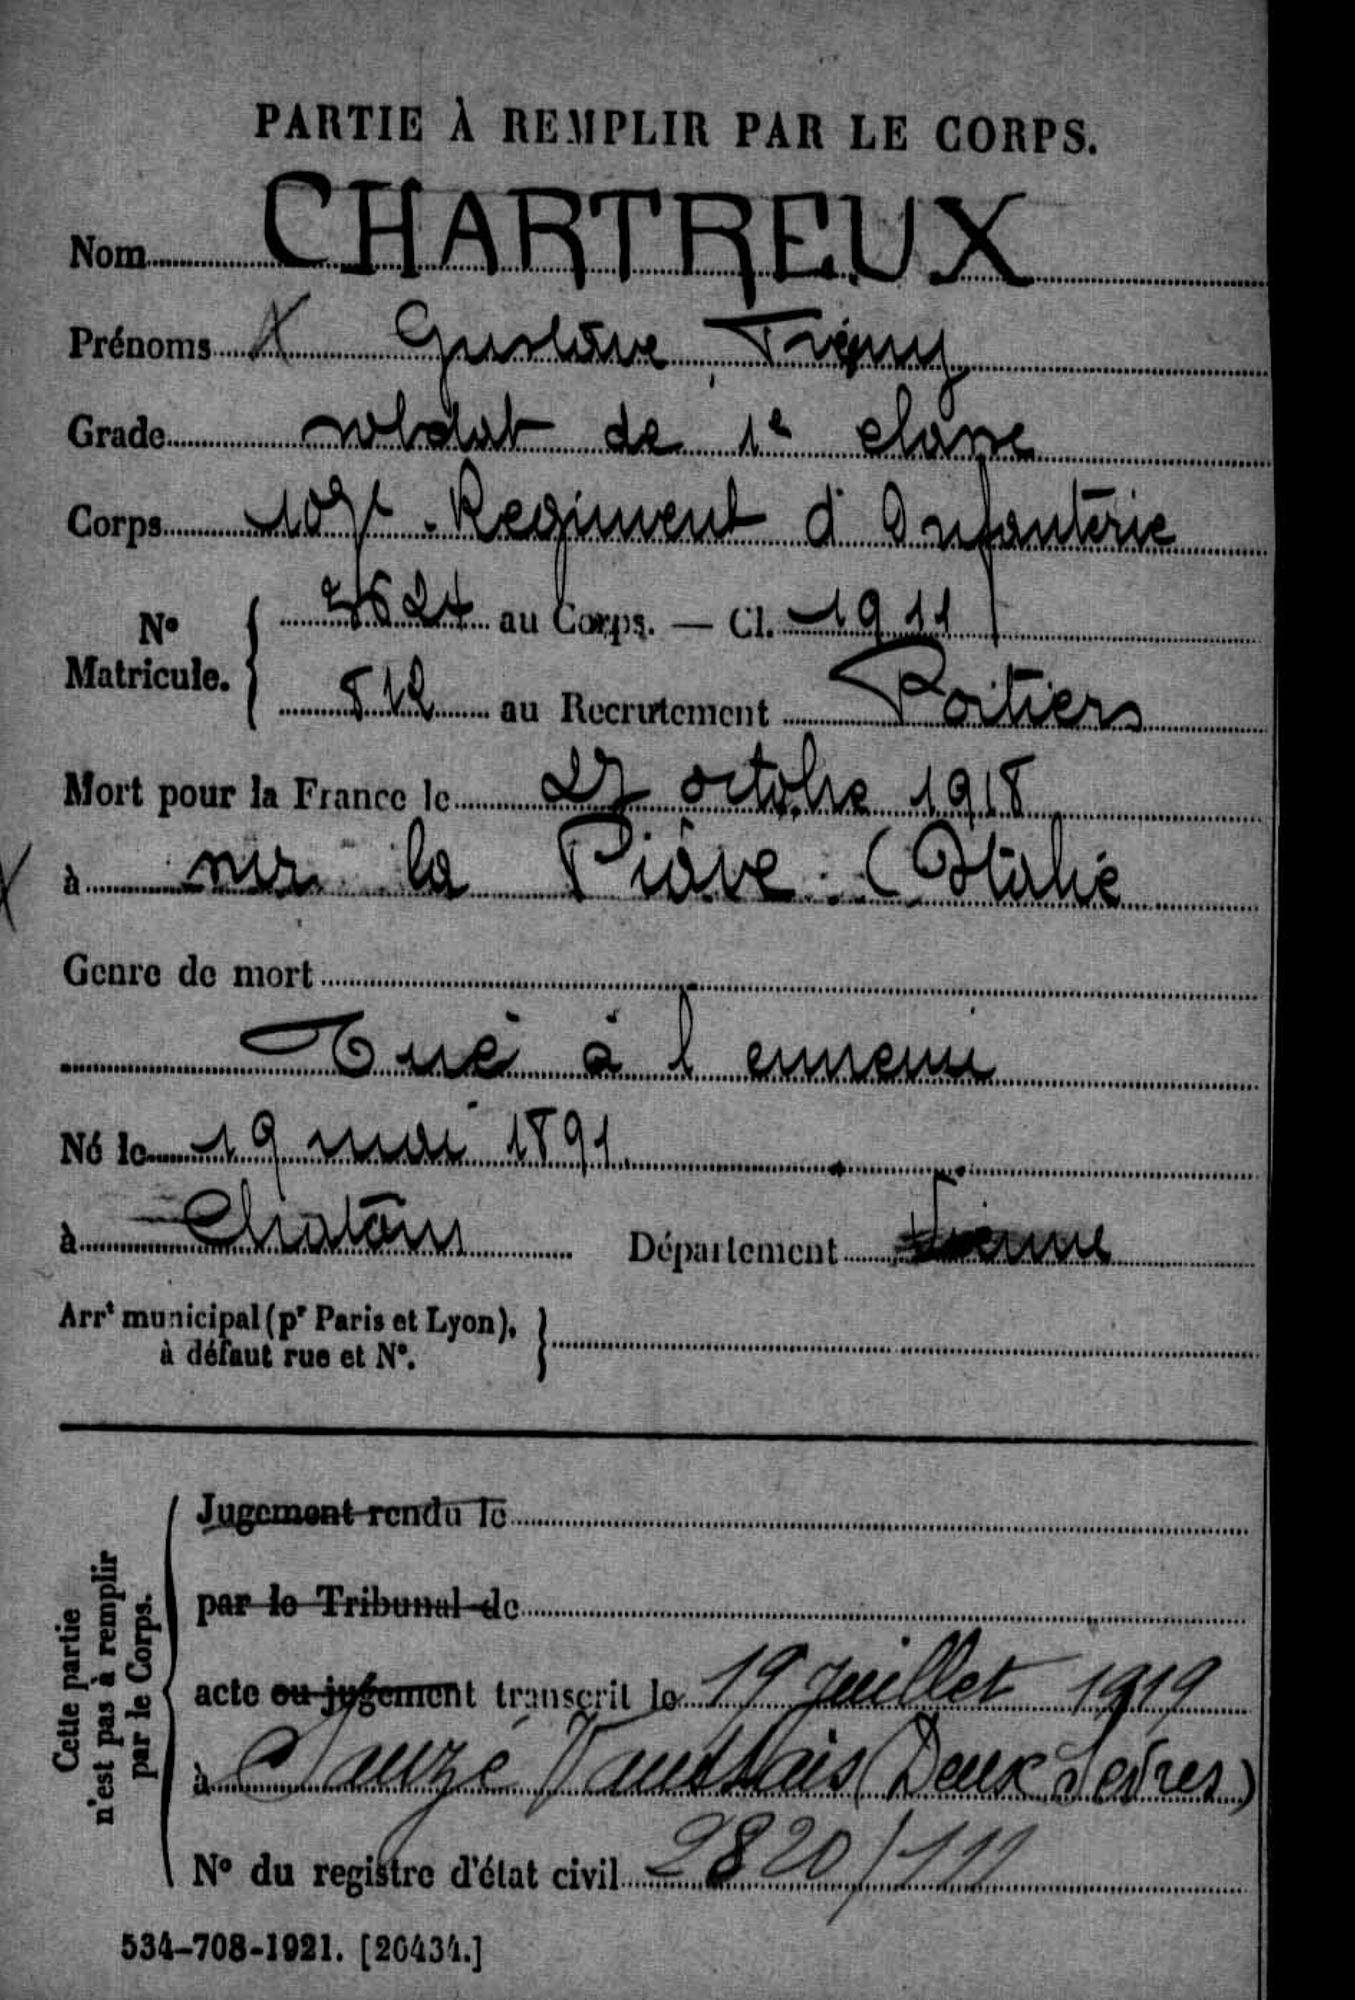 PARTIE À REMPLIR PAR LE CORPS.
Nom CHARTREUX
Prénoms Gustave
Grade soldat de 1e classe
Corps 107e Regiment d'Infanterie
N° Matricule. 7624 au Corps. — Cl. 1911
512 au Recrutement Poitiers
Mort pour la France le 27 octobre 1918
à sur la Piave (Italie
Genre de mort
Tué à l'ennemi
Né le 19 mai 1891
à Chatain Département Vienne
Arrt municipal (pr Paris et Lyon), à défaut rue et N°.
Cette partie n'est pas à remplir par le Corps.
Jugement rendu le
par le Tribunal de
acte ou jugement transcrit le 19 Juillet 1919
à Sauzé Vaussais (Deux Sèvres)
N° du registre d'état civil 2820/111
534-708-1921. [26434.]